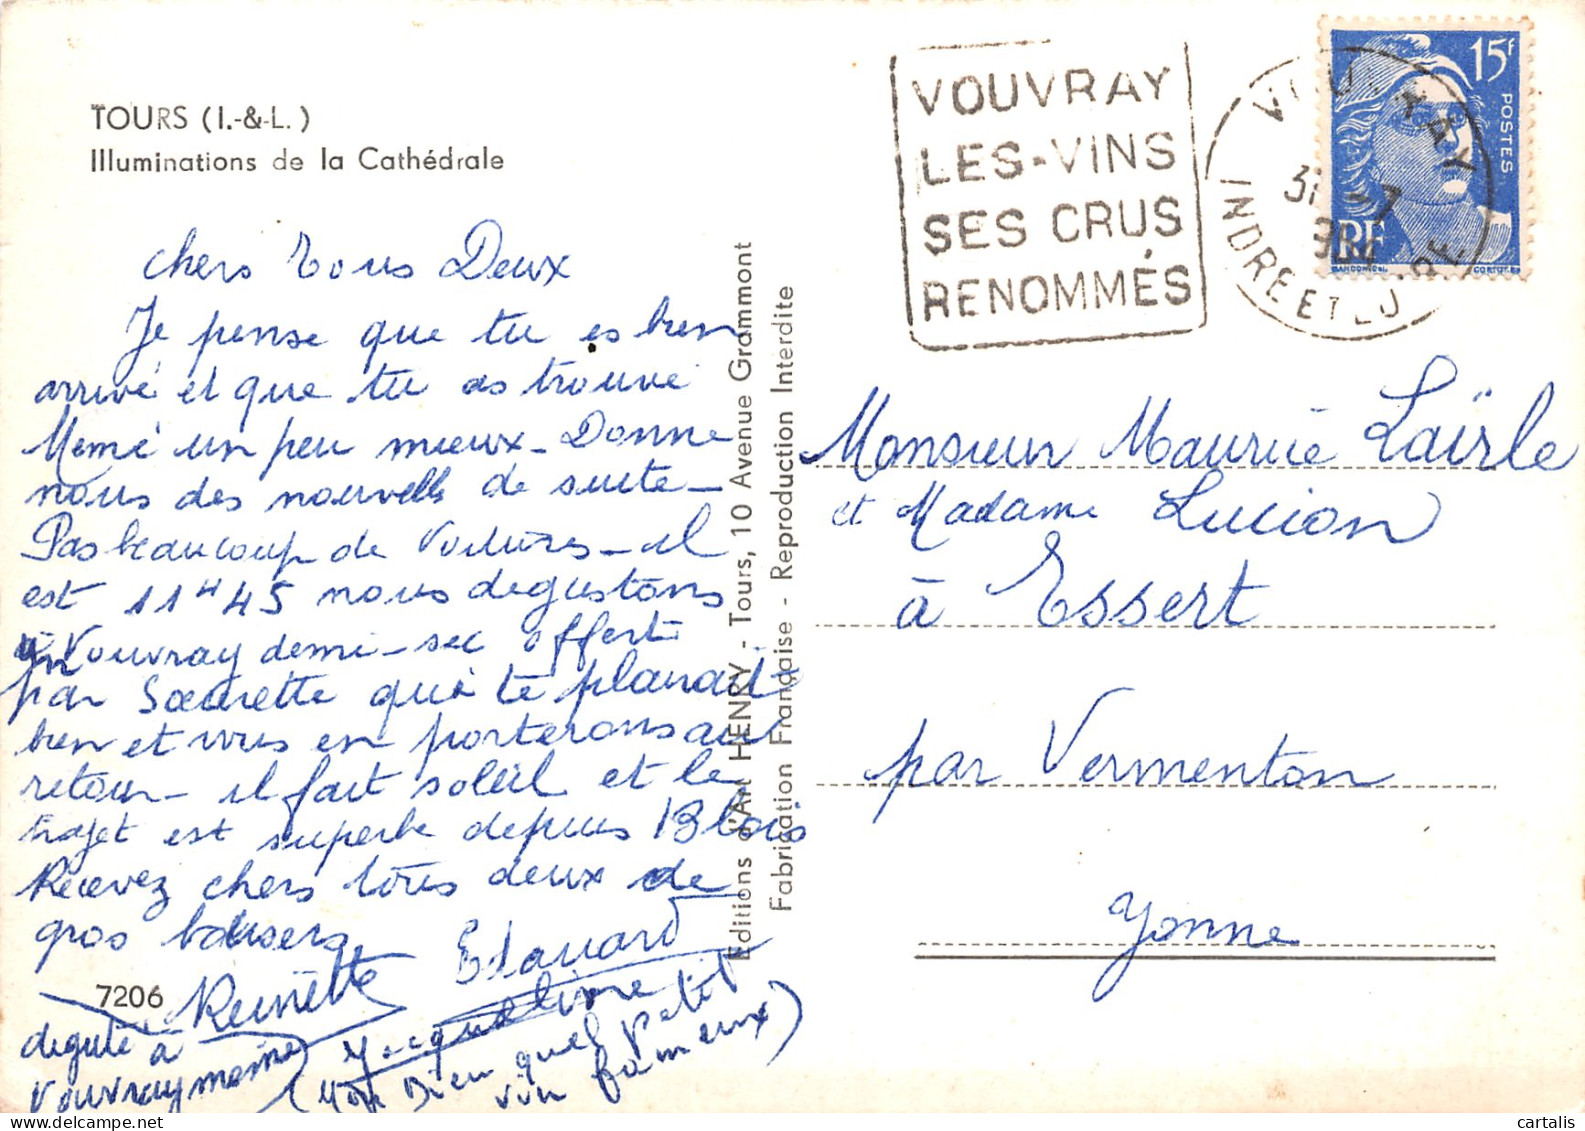 TOURS (I.-&-L.)
Illuminations de la Cathédrale
chers tous Deux
Je pense que tu es bien
arrivé et que tu as trouvé
Mémé un peu mieux - Donne
nous des nouvelles de suite -
Pas beaucoup de voitures - il
est 11H45 nous degustons
un Vouvray demi-sec offert
par Sœurette qui te plairait
bien et nous en porterons au
retour - il fait soleil et le
trajet est superbe depuis Blois
Recevez chers tous deux de
gros baisers
Reinette Edouard
Jacqueline
7206
deguté à
Vouvray meme
(Mon Dieu quel petit
vin fameux)
Editions d'Art HENRY - Tours, 10 Avenue Grammont
Fabrication Française - Reproduction Interdite
VOUVRAY
LES-VINS
SES CRUS
RENOMMÉS
VOUVRAY
31 -7
INDRE ET LOIRE
15F
POSTES
RF
GANDON DEL.
CORTOT SC.
Monsieur Maurice Laïrle
et Madame Lucion
à Essert
par Vermenton
Yonne
cartalis